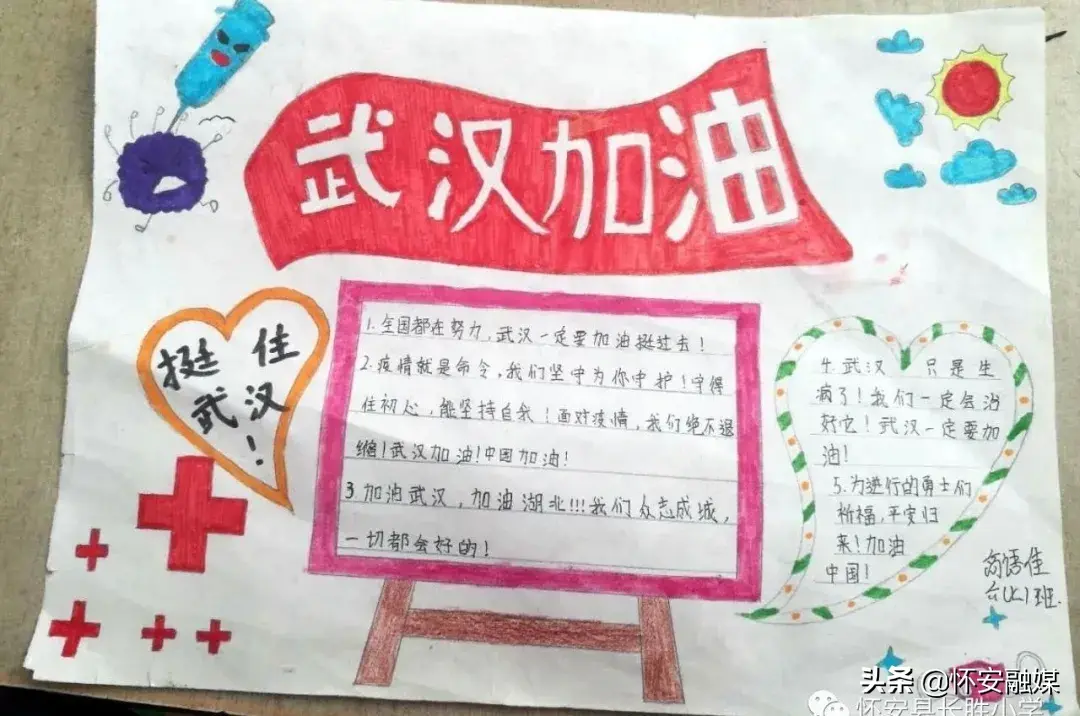 武汉加油
挺住
武汉
!
1.全国都在努力,武汉一定要加油挺过去!
2.疫情就是命令,我们坚守为你守护!守得
住初心,能坚持自我!面对疫情,我们绝不退
缩!武汉加油!中国加油!
3.加油武汉,加油湖北!!!我们众志成城,
一切都会好的!
4.武汉 只是生
病了!我们一定会治
好它!武汉一定要加
油!
5.为逆行的勇士们
祈福,平安归
来!加油
中国!
班.
头条 @怀安融媒
怀安县长胜小学